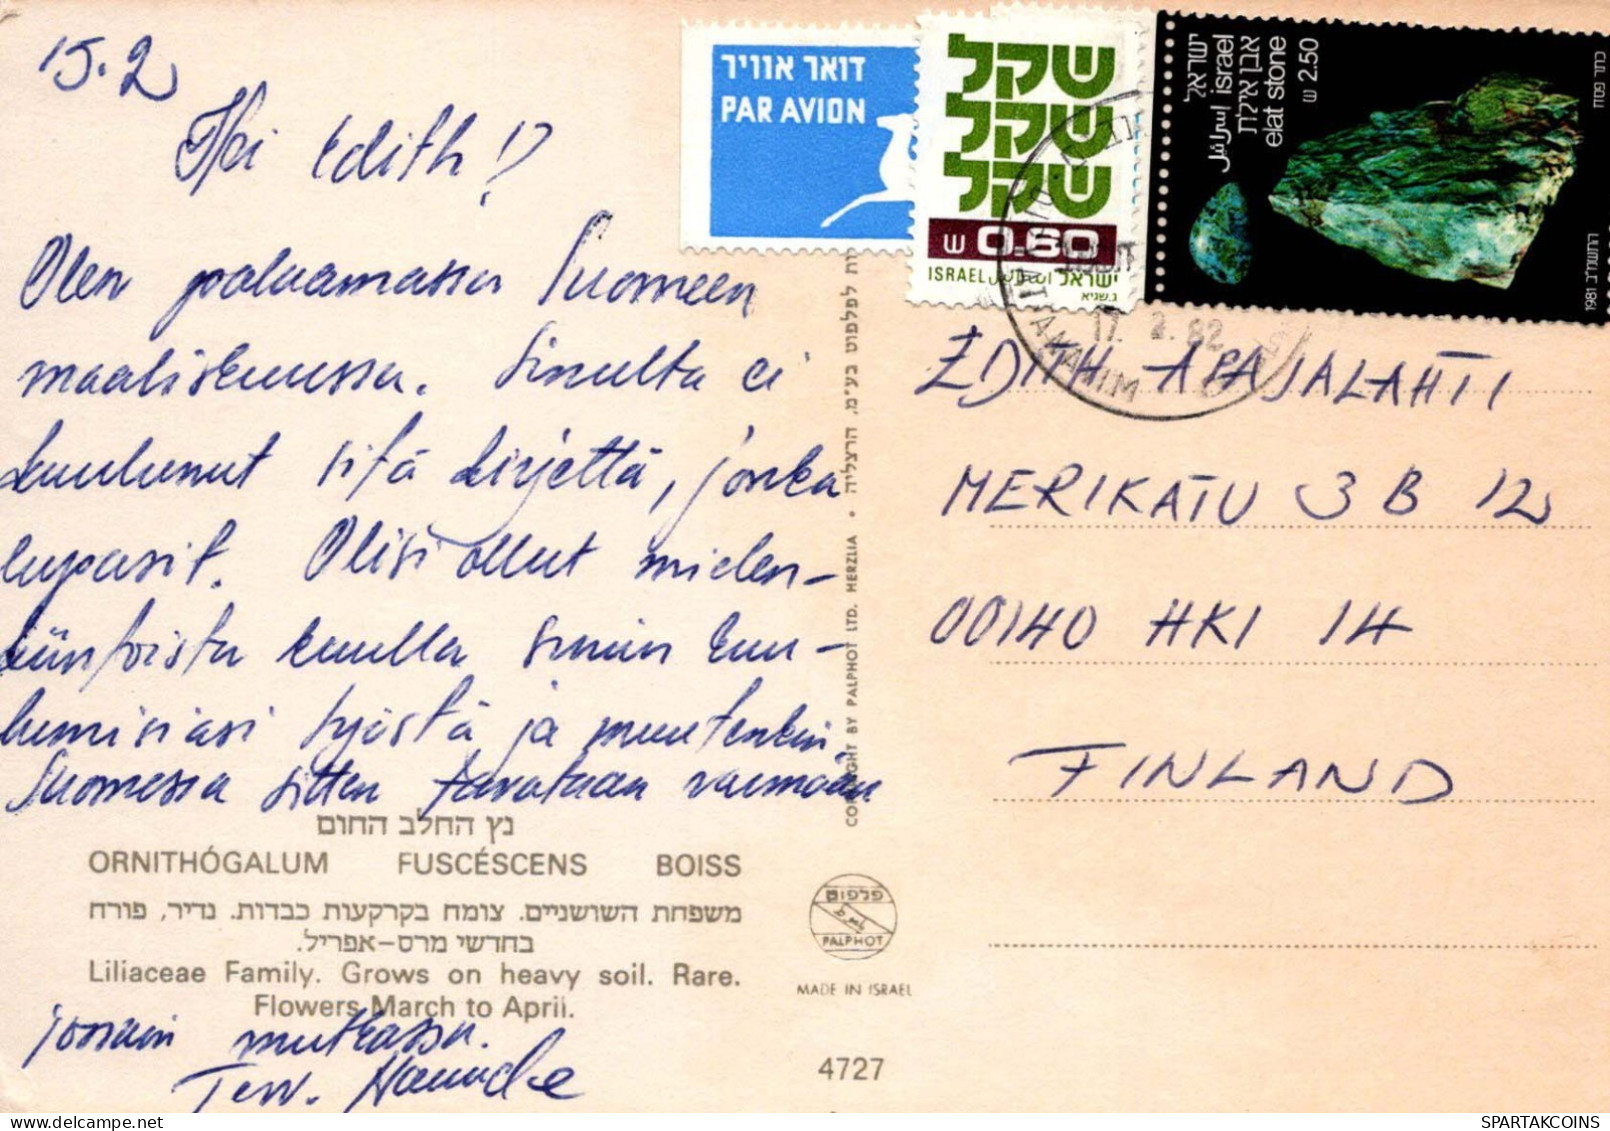 15.2
Hei Edith!
Olen palaamassa Suomeen
maaliskuussa. Sinulta ei
kuulunut sitä kirjettä, jonka
lupasit. Olisi ollut mielen-
kiintoista kuulla sinun kuu-
lumisiasi työstä ja muutenkin.
Suomessa sitten tavataan varmaan
jossain mutkassa.
Terv.
דואר אוויר
PAR AVION
שקל
שקל
שקל
ש 0.60
ISRAEL اسرائيل ישראל
ג. שגיא
ישראל
اسرائيل israel
אבן אילת
elat stone
ש 2.50
התשמ"ב 1981
17. 2. 82
EDITH APAJALAHTI
MERIKATU 3 B 12
00140 HKI 14
FINLAND
נץ החלב החום
ORNITHÓGALUM FUSCÉSCENS BOISS
משפחת השושניים. צומח בקרקעות כבדות. נדיר, פורח
בחדשי מרס-אפריל.
Liliaceae Family. Grows on heavy soil. Rare.
Flowers March to April.
COPYRIGHT BY PALPHOT LTD. HERZLIA • לפלפוט בע"מ, הרצליה
פלפוט
PALPHOT
MADE IN ISRAEL
4727
SPARTAKCOINS